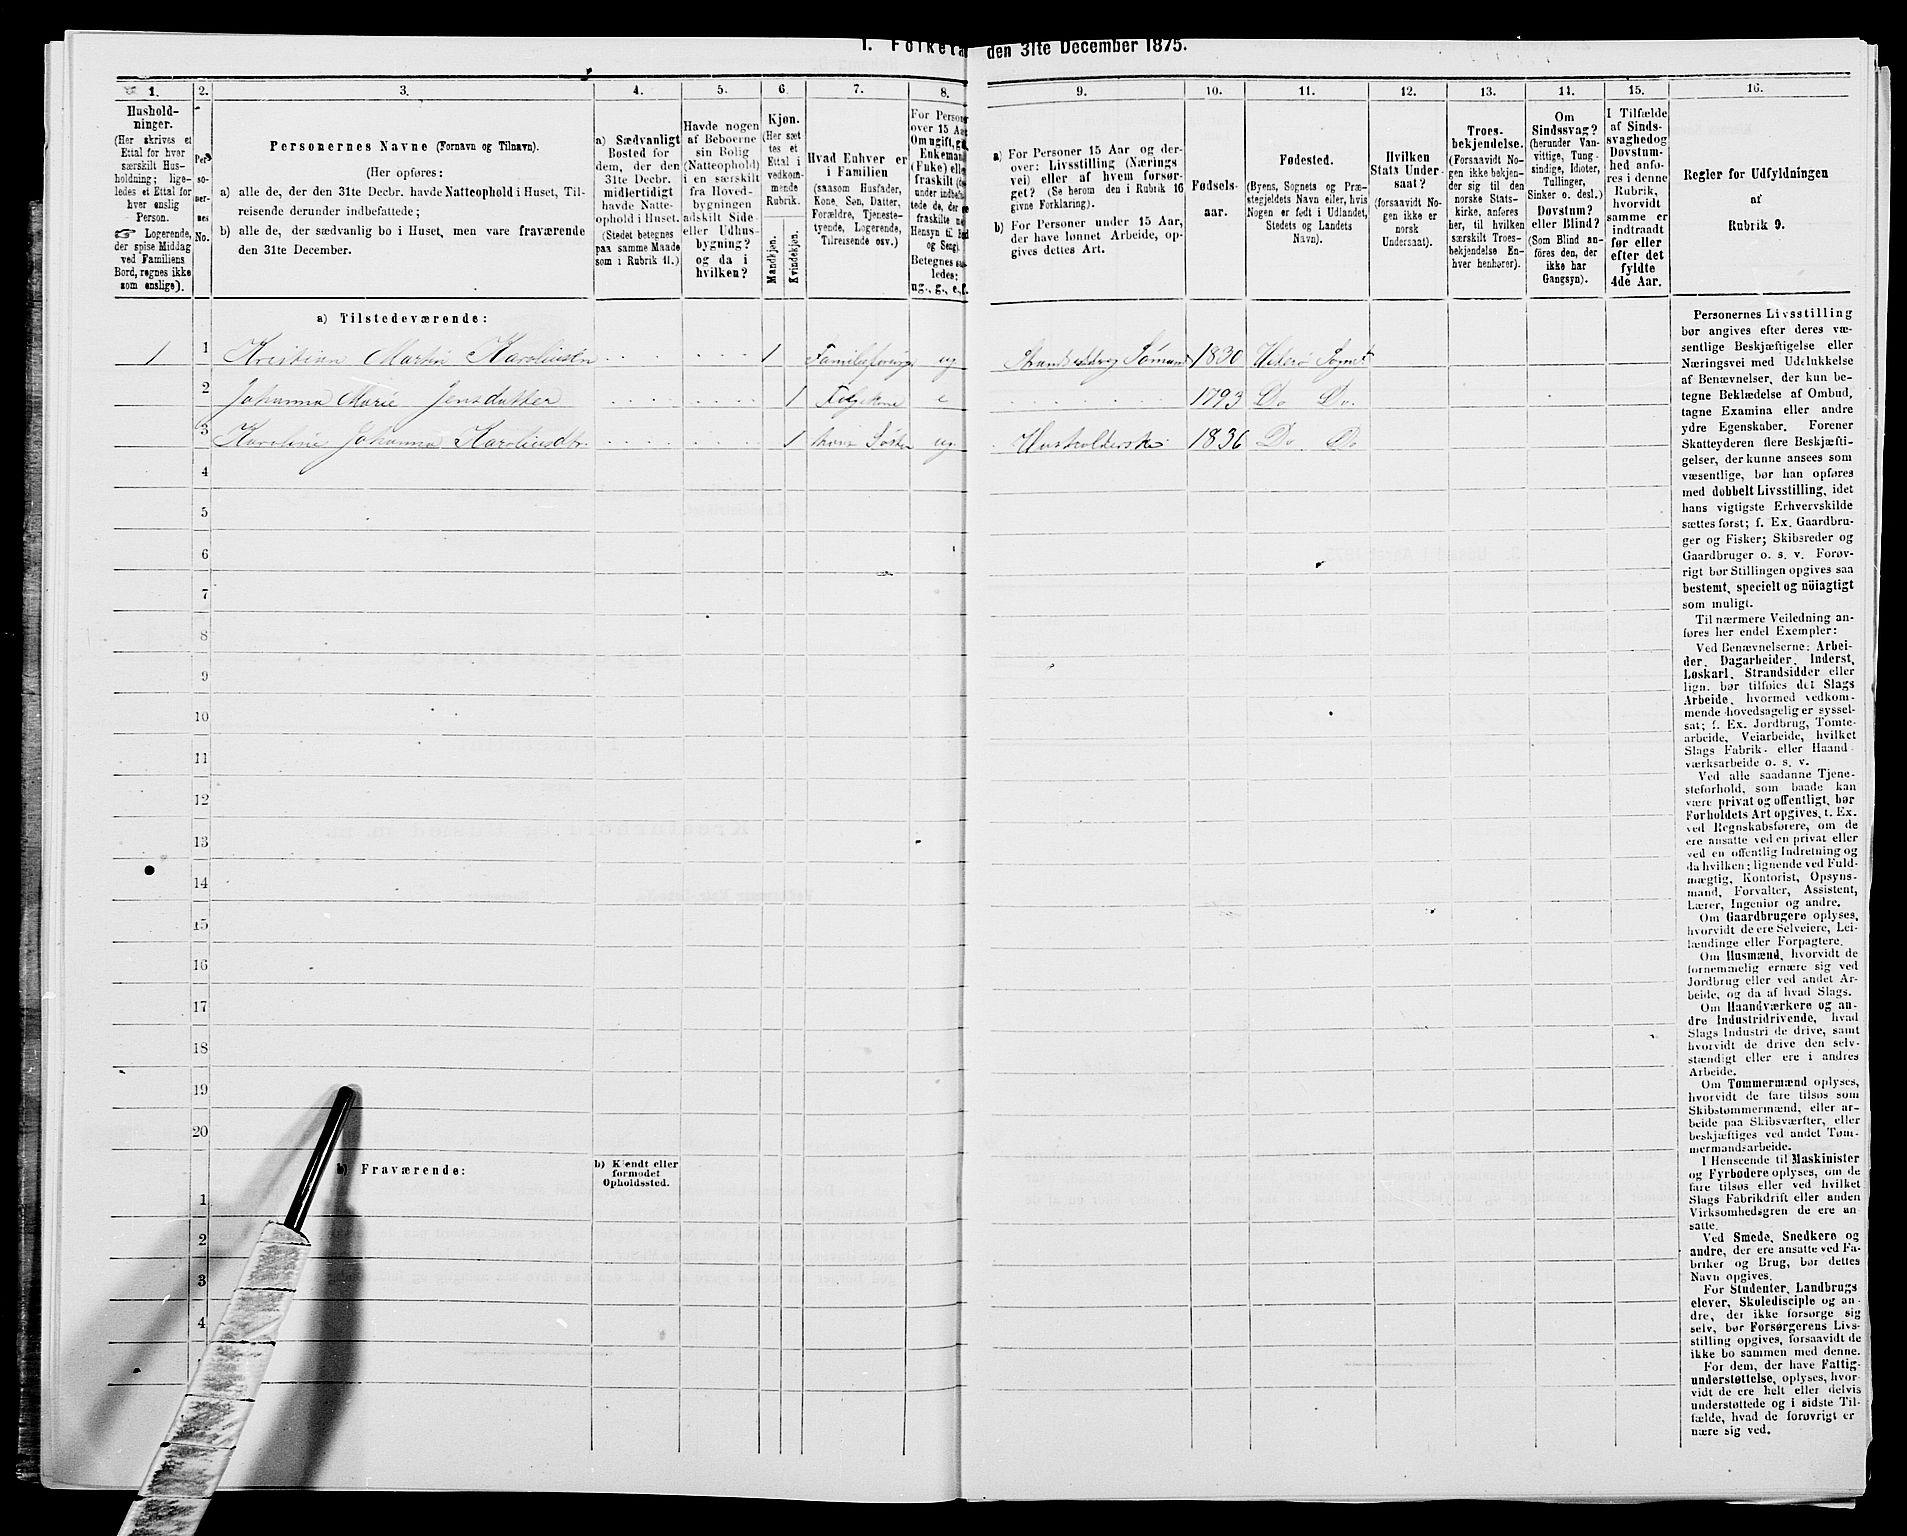 1. Folketæ den 31te December 1875.
1.
Hushold-
ninger.
(Her skrives et
Ettal for hver
særskilt Hus-
holdning; lige-
ledes et Ettal for
hver enslig
Person.
Logerende,
der spise Middag
ved Familiens
Bord, regnes ikke
som enslige).
2.
Per
sone
nernes
No.
3.
Personernes Navne (Fornavn og Tilnavn).
(Her opføres:
a) alle de, der den 31te Decbr. havde Natteophold i Huset, Til-
reisende derunder indbefattede;
b) alle de, der sædvanlig bo i Huset, men vare fraværende
den 31te December.
4.
a) Sædvanligt
Bosted for
dem, der den
31te Decbr.
midlertidigt
havde Natte-
ophold i Huset.
(Stedet betegnes
paa samme Maade
som i Rubrik 11.)
5.
Havde nogen
af Beboerne
sin Bolig
(Natteophold)
i en særskilt
fra Hoved-
bygningen
adskilt Side-
eller Udhus-
bygning?
og da i
hvilken?
6.
Kjøn.
(Her sæt
tes et
Ettal i
vedkom-
mende
Rubrik.
Mandkjøn.
Kvindekjøn.
7.
Hvad Enhver er
i Familien
(saasom Husfader,
Kone, Søn, Datter,
Forældre, Tjeneste-
tyende, Logerende,
Tilreisende osv.)
8.
For Person
over 15 Aa
Om ugift, gi
Enkemand
(Enke) ell
fraskilt
under indbefat
tede de, der
fraskilte
Hensyn til
og Seng).
Betegnes
ledes:
ug., g., e., f.
9.
a) For Personer 15 Aar og der-
over: Livsstilling (Nærings
vei) eller af hvem forsør-
get? (Se herom den i Rubrik 16
givne Forklaring).
b) For Personer under 15 Aar,
der have lønnet Arbeide, op-
gives dettes Art.
10.
Fødsels-
aar.
11.
Fødested.
(Byens, Sognets og Præ-
stegjeldets Navn eller, hvis
Nogen er født i Udlandet,
Stedets og Landets
Navn).
12.
Hvilken
Stats Under-
saat?
(forsaavidt No-
gen ikke er
norsk
Undersaat).
13.
Troes-
bekjendelse.
(Forsaavidt No-
gen ikke bekjen-
der sig til den
norske Stats-
kirke, anføres
her, til hvilken
særskilt Troes-
bekjendelse En-
hver henhører).
14.
Om
Sindssvag?
(herunder Van-
vittige, Tung-
sindige, Idioter,
Tullinger,
Sinker o. desl.)
Døvstum?
eller Blind?
(Som Blind an-
føres den, der
ikke har
Gangsyn).
15.
I Tilfælde
af Sinds-
svaghedog
Døvstum-
hed anfø-
res i denne
Rubrik,
hvorvidt
samme er
indtraadt
før eller
efter det
fyldte
4de Aar.
16.
Regler for Udfyldningen
af
Rubrik 9.
a) Tilstedeværende:
1 1 Kristian Martin Karoliusen 1 ug 1830 Hiterø Sogn
2 Johanna Marie Jensdatter 1 Føljekone e 1793 Do Do.
3 Karoline Johanna Karoliusdtr. 1 hans Søster ug Husholderske 1836 Do Do
4
5
6
7
8
9
10
11
12
13
14
15
16
17
18
19
20
b) Fraværende:
b) Kjendt eller
formodet
Opholdssted.
1
2
3
4
Personernes Livsstilling
bør angives efter deres væ-
sentlige Beskjæftigelse eller
Næringsvei med Udelukkelse
af Benævnelser, der kun be-
tegne Beklædelse af Ombud,
tagne Examina eller andre
ydre Egenskaber. Forener
Skatteyderen flere Beskjæfti-
gelser, der kunne ansees som
væsentlige, bør han opføres
med dobbelt Livsstilling, idet
hans vigtigste Erhvervskilde
sættes først; f. Ex. Gaardbru-
ger og Fisker; Skibsreder og
Gaardbruger o. s. v. Forøv-
rigt bør Stillingen opgives saa
bestemt, specielt og nöiagtigt
som muligt.
Til nærmere Veiledning an-
føres her endel Exempler:
Ved Benævnelserne: Arbei-
der, Dagarbeider, Inderst,
Løskarl, Strandsidder eller
lign. bør tilføies det Slags
Arbeide, hvormed vedkom-
mende hovedsagelig er syssel-
sat; f. Ex. Jordbrug, Tomte-
arbeide, Veiarbeide, hvilket
Slags Fabrik- eller Haand-
værksarbeide o. s. v.
Ved alle saadanne Tjene-
steforhold, som baade kan
være privat og offentligt, bør
Forholdets Art opgives, t. Ex.
ved Regnskabsførere, om de
ere ansatte ved en privat eller
ved en offentlig Indretning og
da hvilken; lignende ved Fuld-
mægtig, Kontorist, Opsyns-
mand, Forvalter, Assistent,
Lærer, Ingeniør og andre.
Om Gaardbrugere oplyses,
hvorvidt de ere Selveiere, Lei-
lændinge eller Forpagtere.
Om Husmænd, hvorvidt de
fornemmelig ernære sig ved
Jordbrug eller ved andet Ar-
beide, og da af hvad Slags.
Om Haandværkere og an-
dre Industridrivende, hvad
Slags Industri de drive, samt
hvorvidt de drive den selv-
stændigt eller ere i andres
Arbeide.
Om Tømmermænd oplyses,
hvorvidt de fare tilsøs som
Skibstømmermænd, eller ar-
beide paa Skibsværfter, eller
beskjæftiges ved andet Tøm-
mermandsarbeide.
I Henseende til Maskinister
og Fyrbødere oplyses, om de
fare tilsøs eller ved hvilket
Slags Fabrikdrift eller anden
Virksomhedsgren de ere an
satte.
Ved Smede, Snedkere og
andre, der ere ansatte ved Fa-
briker og Brug, bør dettes
Navn opgives.
For Studenter, Landbrugs
elever, Skoledisciple og an-
dre, der ikke forsørge sig
selv, bør Forsørgerens Livs-
stilling opgives, forsaavidt de
ikke bo sammen med denne.
For dem, der have Fattig-
understøttelse, oplyses, hvor-
vidt de ere helt eller delvis
understøttede og i sidste Til-
fælde, hvad de forøvrigt er
nære sig ved.